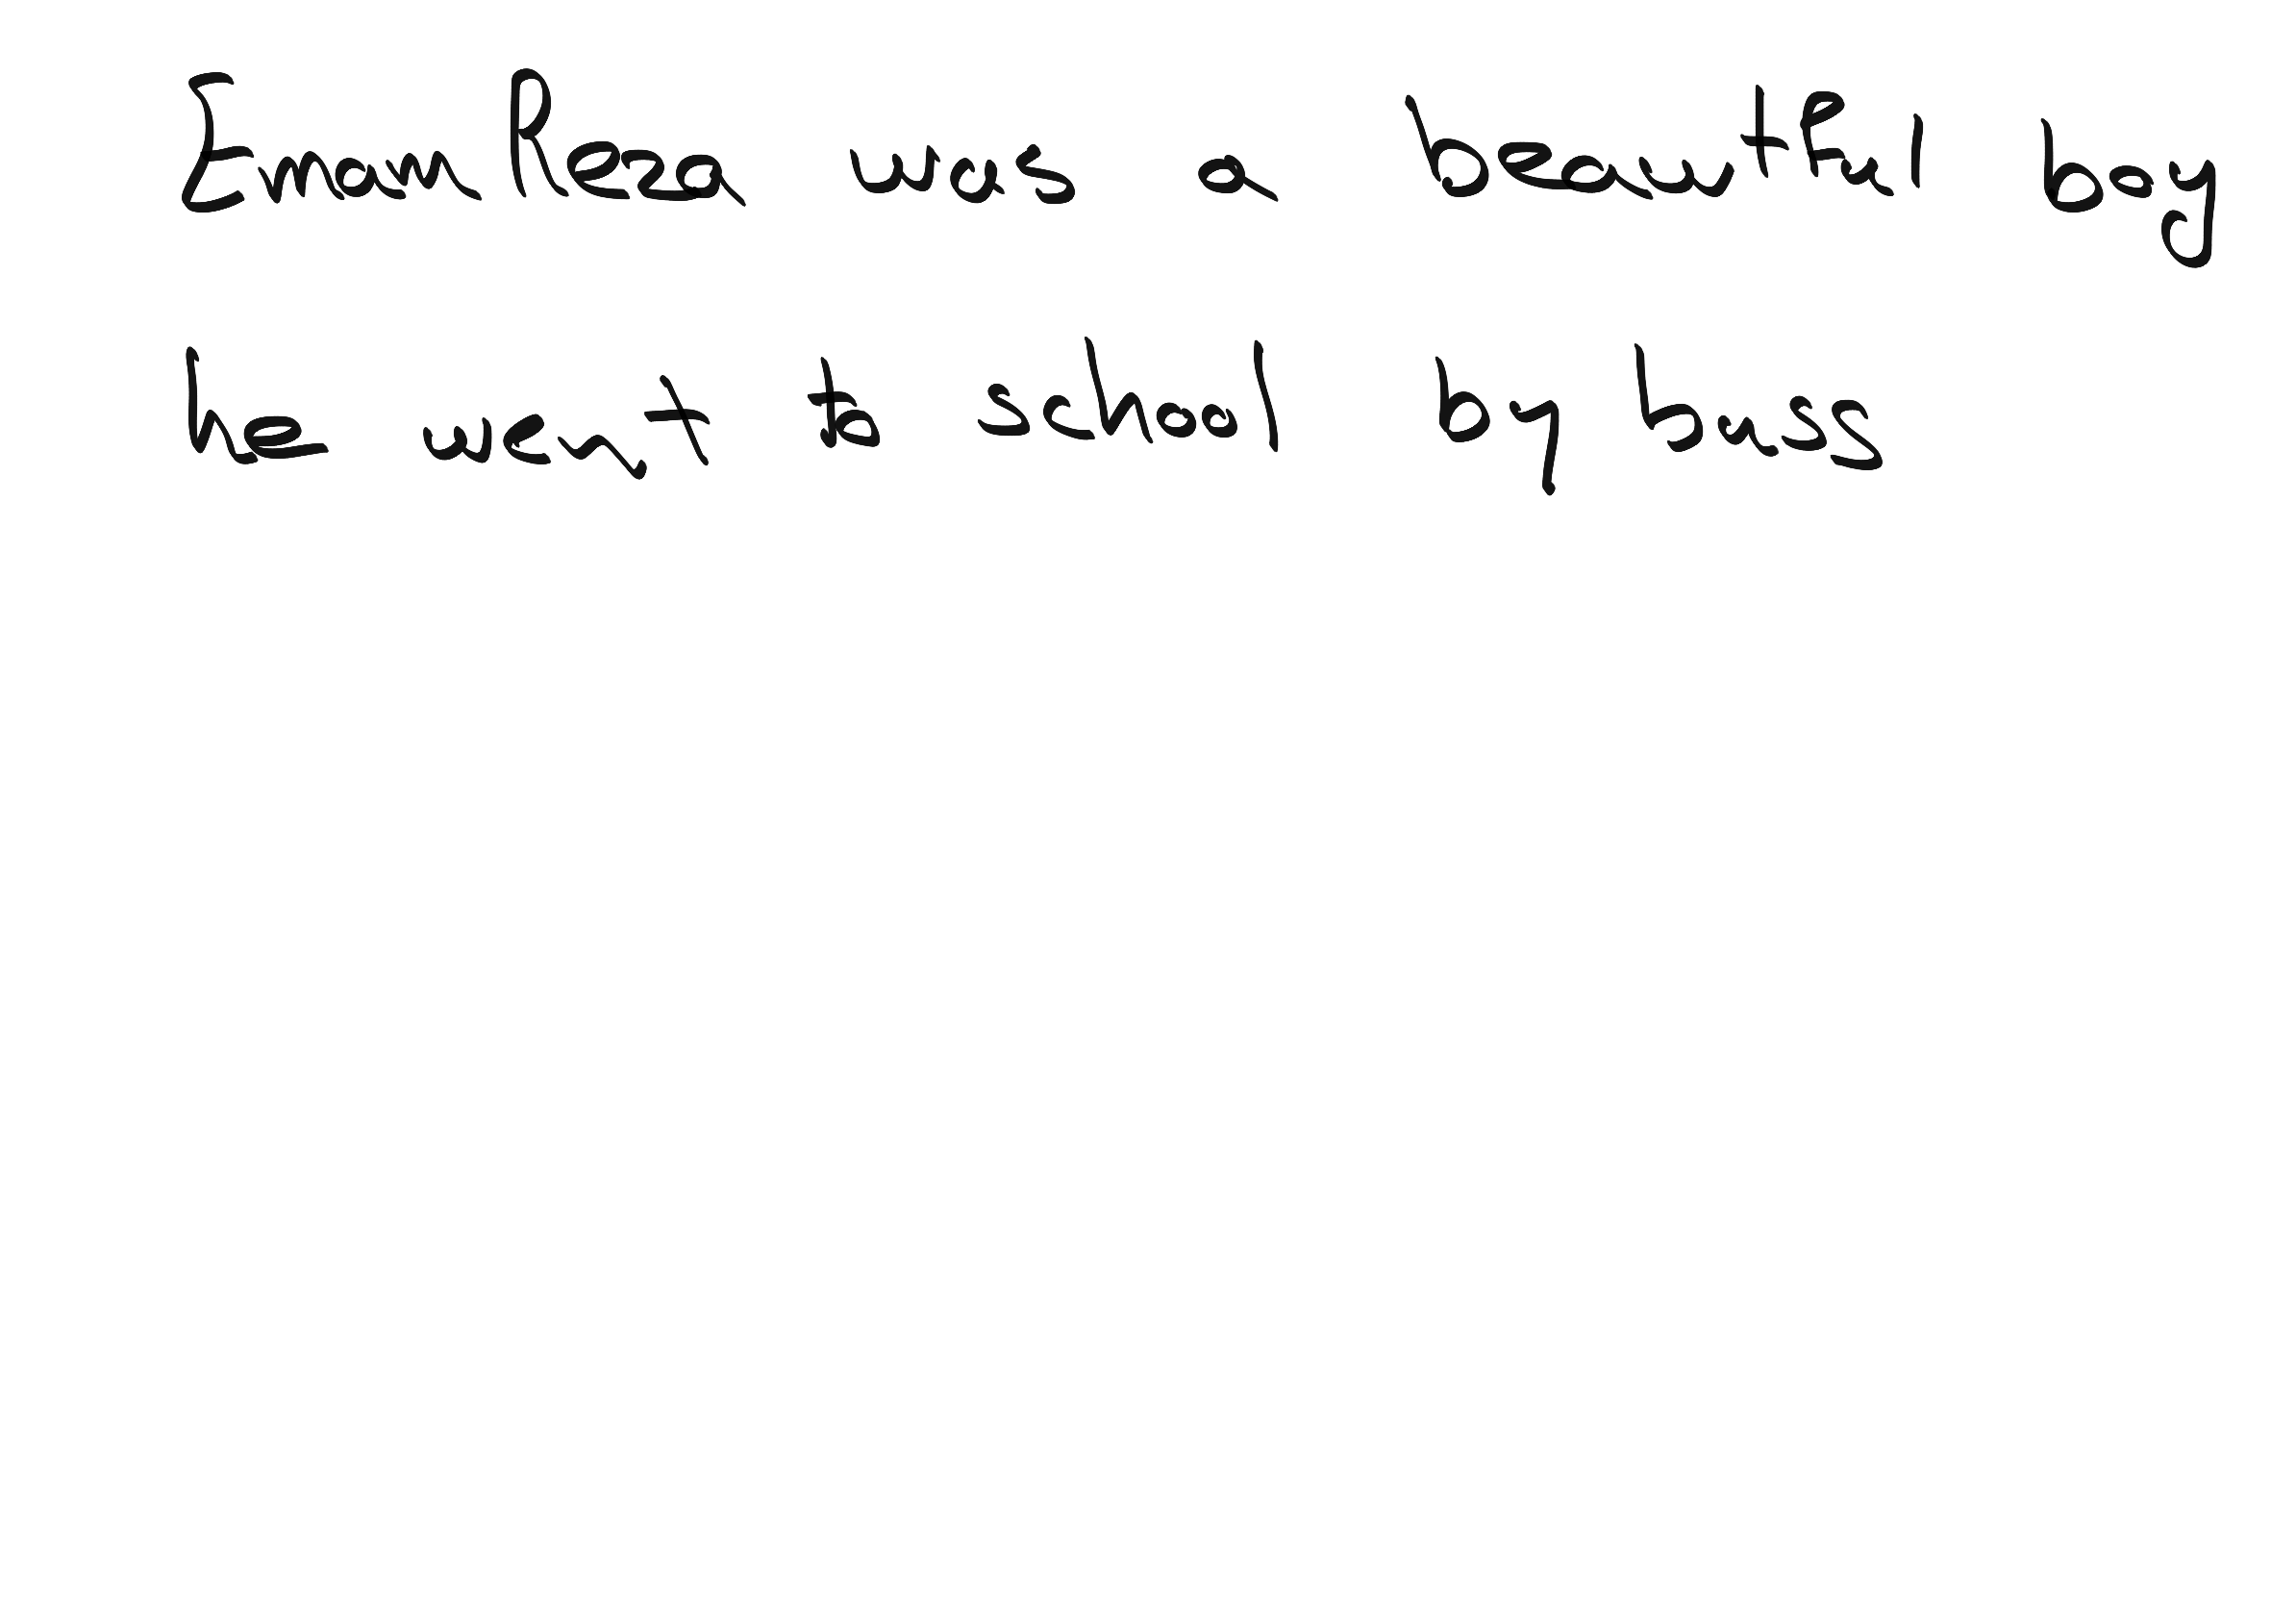 EmamReza was a beautful boy
he went to school by buss